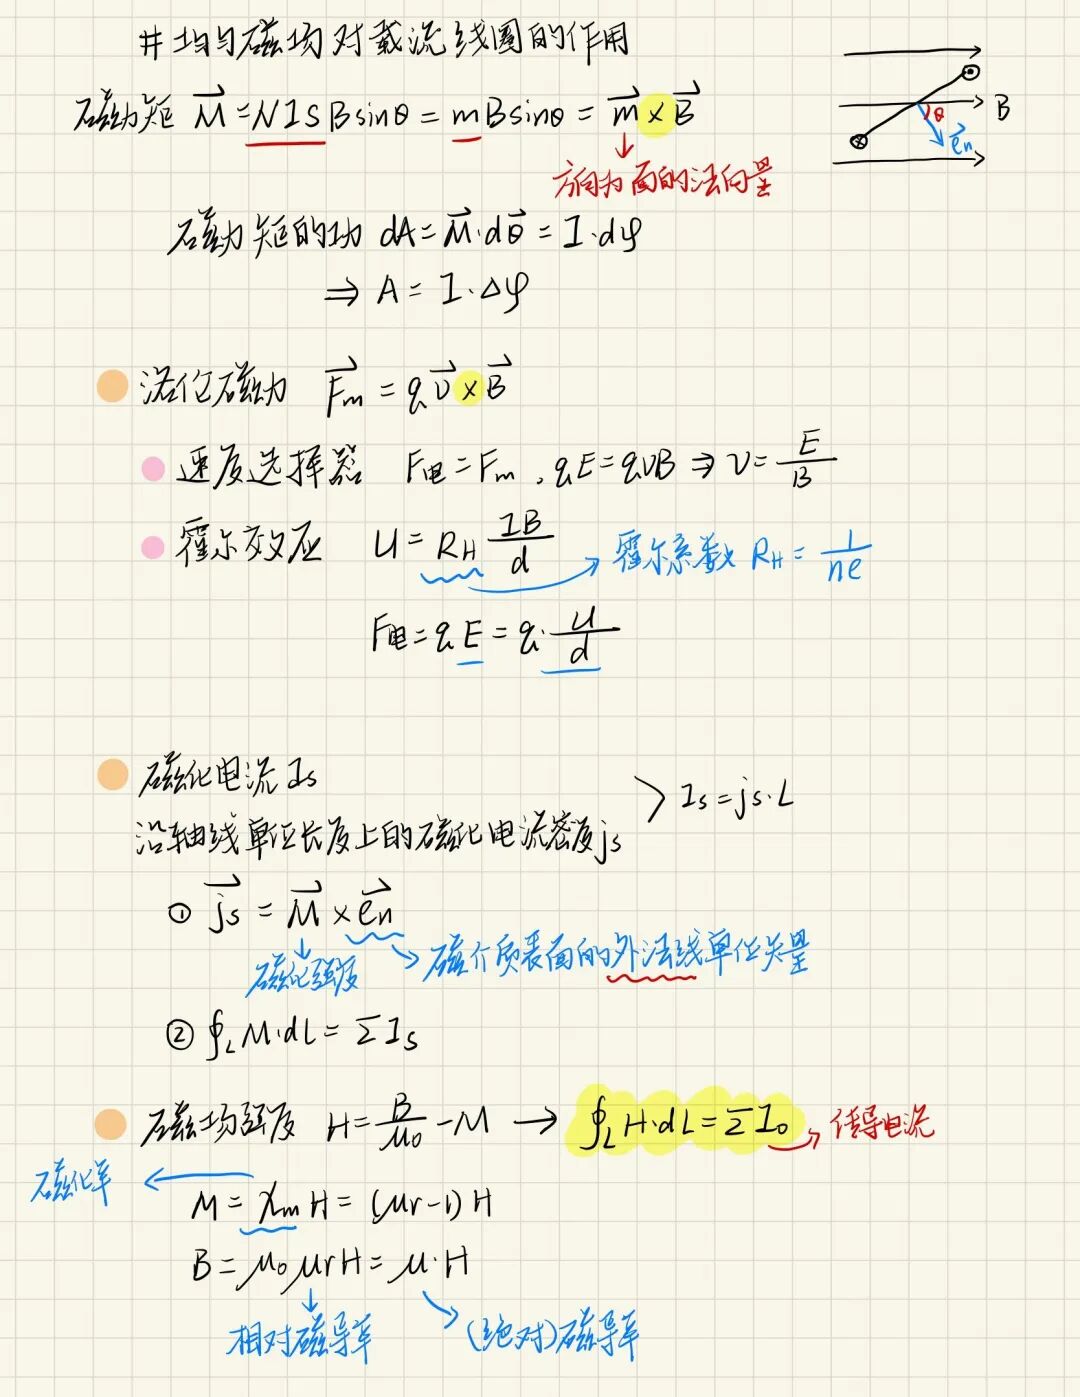 # 均匀磁场对载流线圈的作用
磁力矩 M⃗ = NISBsinθ = mBsinθ = m⃗ × B⃗
B
θ
e⃗n
方向为面的法向量
磁力矩的功 dA = M⃗·dθ⃗ = I·dφ
⇒ A = I·Δφ
洛伦磁力 F⃗m = qv⃗ × B⃗
速度选择器 F电 = Fm, qE = qvB ⇒ v = E/B
霍尔效应 U = RH IB/d → 霍尔系数 RH = 1/ne
F电 = qE = q·U/d
磁化电流 Is
沿轴线单位长度上的磁化电流密度js
> Is = js·L
① j⃗s = M⃗ × e⃗n
磁化强度
磁介质表面的外法线单位矢量
② ∮L M·dL = ΣIs
磁场强度 H = B/μ0 - M → ∮L H·dL = ΣI0 → 传导电流
磁化率 ← M = χm H = (μr-1)H
B = μ0μrH = μ·H
相对磁导率
(绝对)磁导率